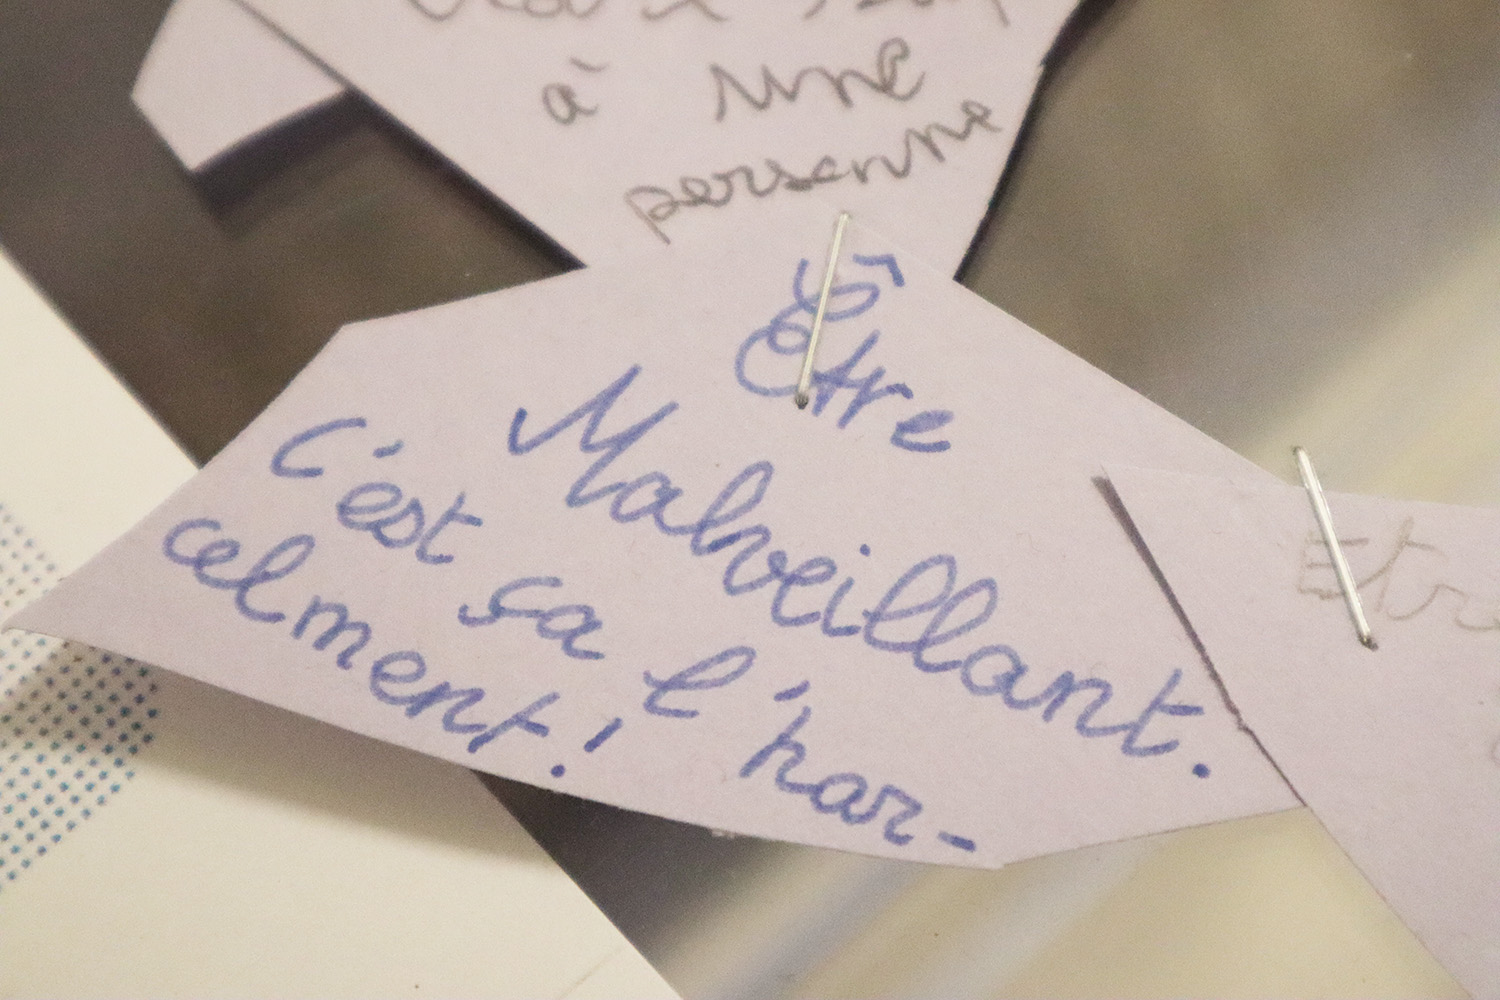 à une
personne
Être
Malveillant.
C'est sa l'har-
celment!
Etre